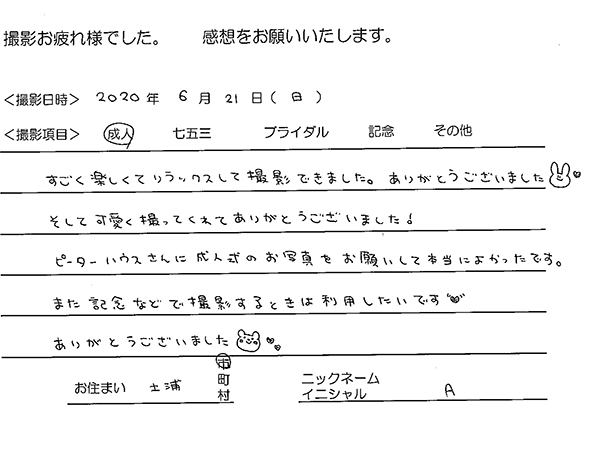 撮影お疲れ様でした。 感想をお願いいたします。
＜撮影日時＞ 2020 年 6 月 21 日 ( 日 )
＜撮影項目＞ 成人 七五三 ブライダル 記念 その他
すごく楽しくてリラックスして撮影できました。ありがとうございました
そして可愛く撮ってくれてありがとうございました!
ピーターハウスさんに成人式のお写真をお願いして本当によかったです。
また記念などで撮影するときは利用したいです
ありがとうございました
お住まい 土浦 市 町 村 ニックネーム イニシャル A